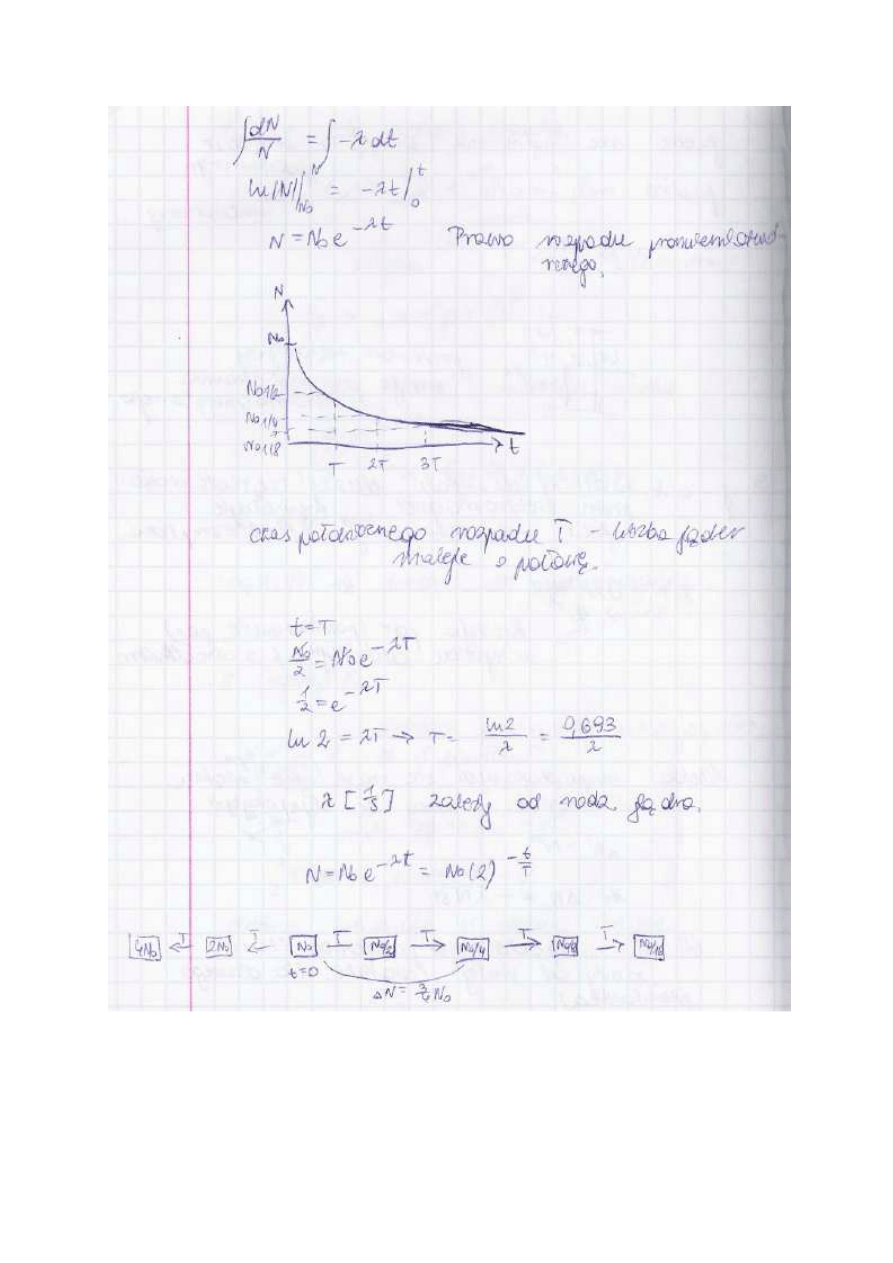 ∫ dN/N = ∫ -λ dt
ln|N| |_{N₀}^{N} = -λt |_0^t
N = N₀ e^{-λt} Prawo rozpadu promieniotwór-
czego.
N
N₀
N₀ 1/2
N₀ 1/4
N₀ 1/8
t
T 2T 3T
czas połowicznego rozpadu T - liczba jąder
maleje o połowę.
t = T
N₀/2 = N₀ e^{-λT}
1/2 = e^{-λT}
ln 2 = λT → T = ln2/λ = 0,693/λ
λ [1/s] zależy od rodz. jądra.
N = N₀ e^{-λt} = N₀ (2)^{-t/T}
4N₀ ←T 2N₀ ←T N₀ T— N₀/2 T→ N₀/4 T→ N₀/8 T→ N₀/16
t=0
ΔN = 3/4 N₀